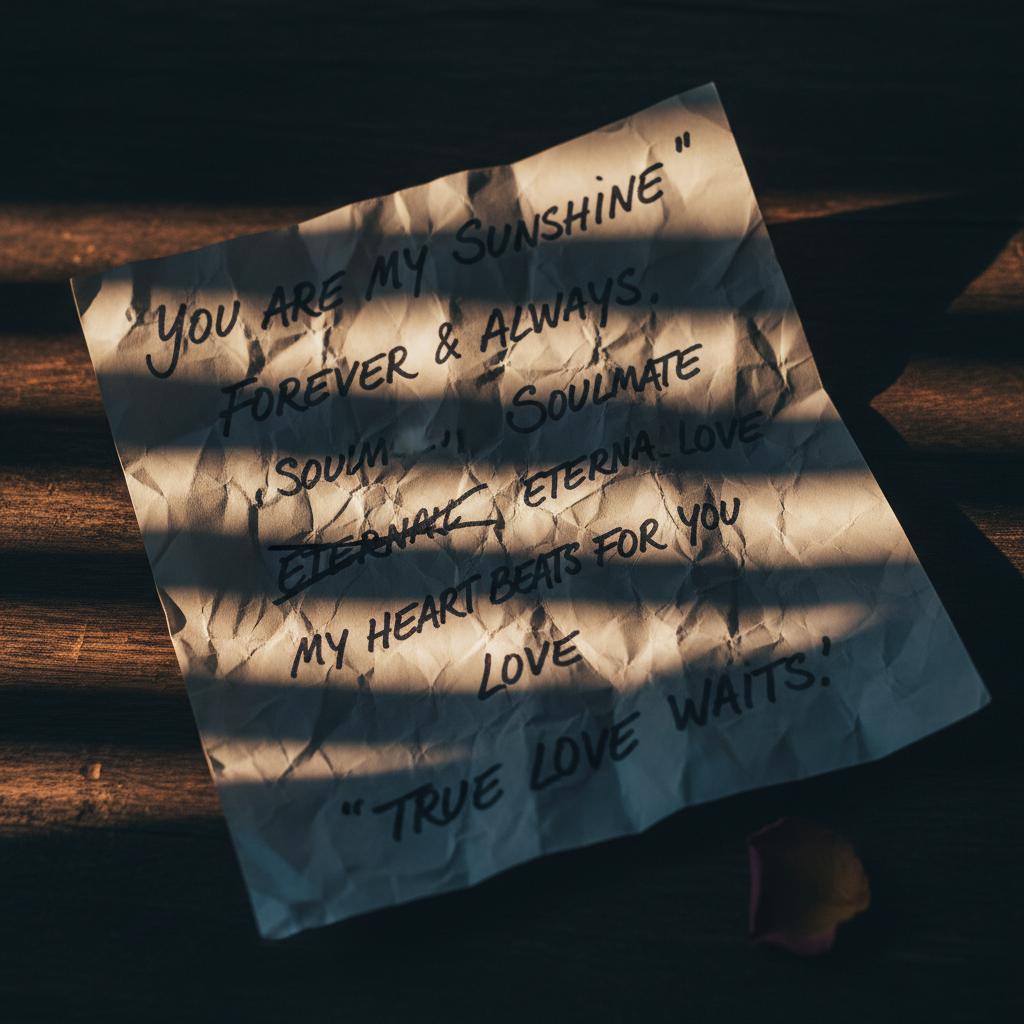 "You ARE MY SUNSHiNE"
FOREVER & ALWAYS.
SOULMATE
ETERNA LOVE
MY HEART BEATS FOR YOU
LOVE
"TRUE LOVE WAiTS.'